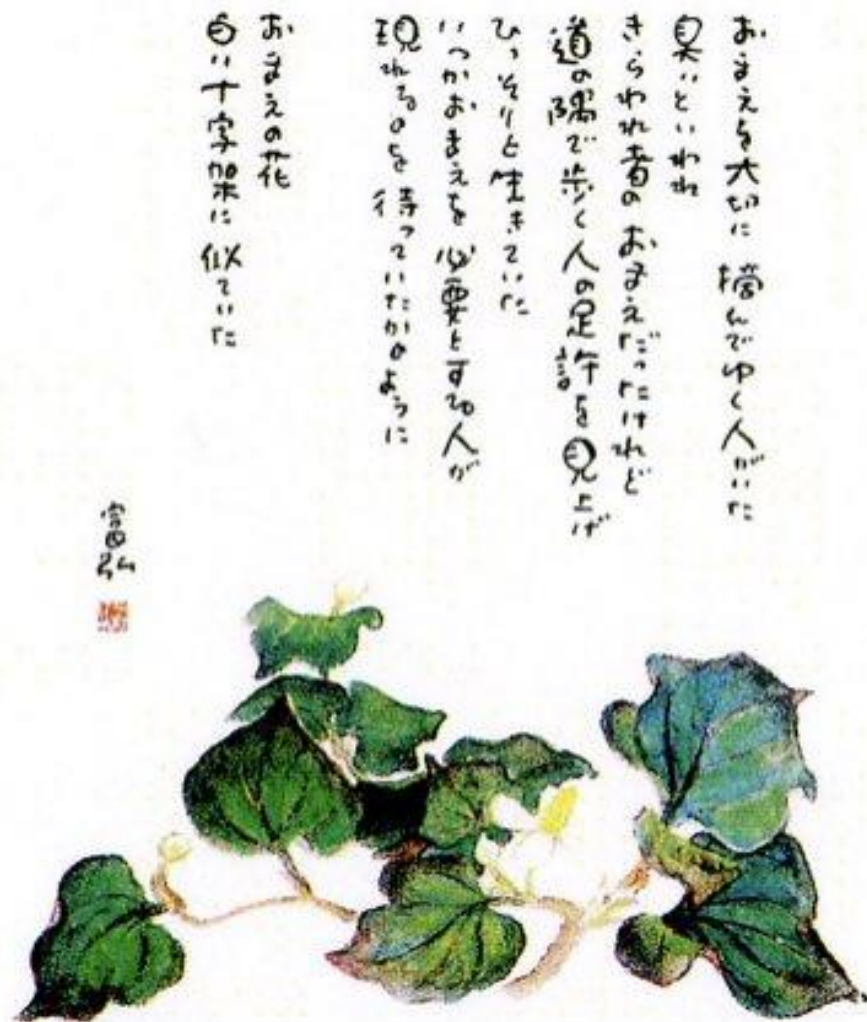 おまえを大切に 摘んでゆく人がいた
臭いといわれ
きらわれ者の おまえだったけれど
道の隅で 歩く人の足許を見上げ
ひっそりと生きていた
いつかおまえを 必要とする人が
現れるのを 待っていたかのように
おまえの花
白い十字架に 似ていた
富弘